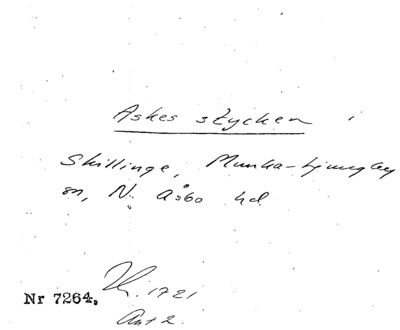 Askes stycken
Skillinge, Munka-Ljungby
sn, N. Åsbo hd
Nr 7264. 1721
Ant 2.